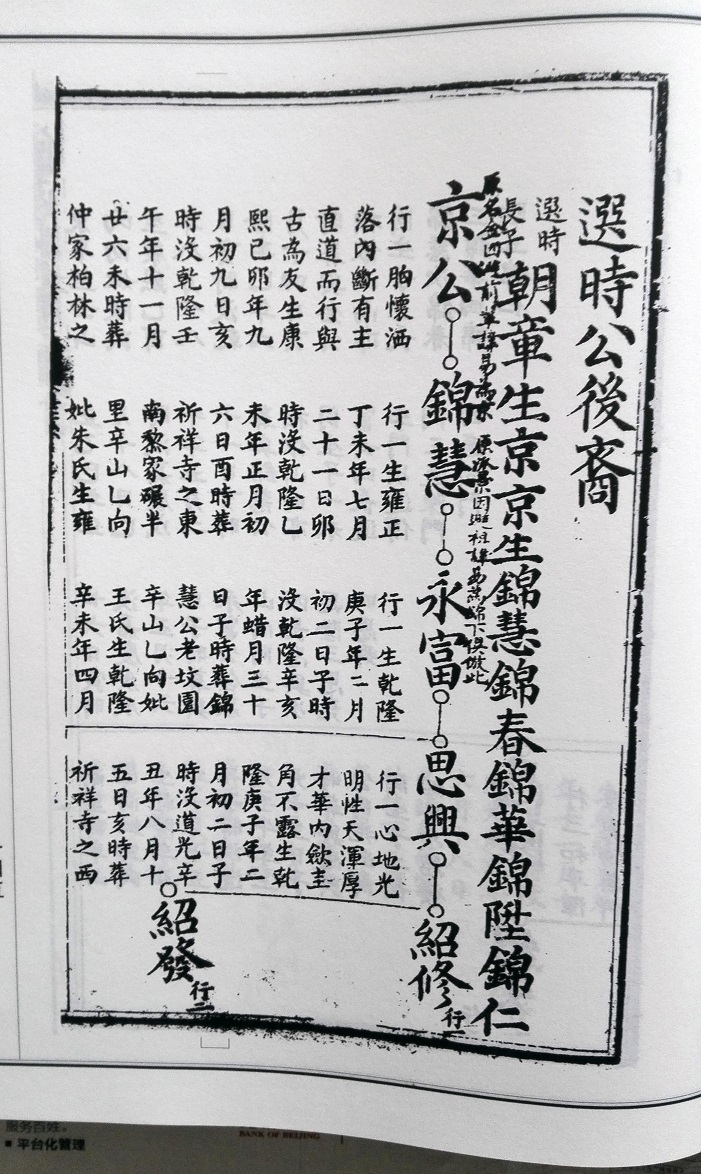 選時公後裔
選時
長子
朝章生京京生錦慧錦春錦華錦陞錦仁
京公
錦慧
永富
思興
紹修
行一
行一胸懷洒
落內斷有主
直道而行與
古為友生康
熙己卯年九
月初九日亥
時沒乾隆壬
午年十一月
廿六未時葬
仲家柏林之
行一生雍正
丁未年七月
二十一日卯
時沒乾隆乙
未年正月初
六日酉時葬
祈祥寺之東
南黎家碾半
里辛山乚向
妣朱氏生雍
行一生乾隆
庚子年二月
初二日子時
沒乾隆辛亥
年蜡月三十
日子時葬錦
慧公老坟園
辛山乚向妣
王氏生乾隆
辛未年四月
行一心地光
明性天渾厚
才華內歛圭
角不露生乾
隆庚子年二
月初二日子
時沒道光辛
丑年八月十
五日亥時葬
祈祥寺之西
紹發
行二
服务百姓。
■ 平台化管理
BANK OF BEIJING